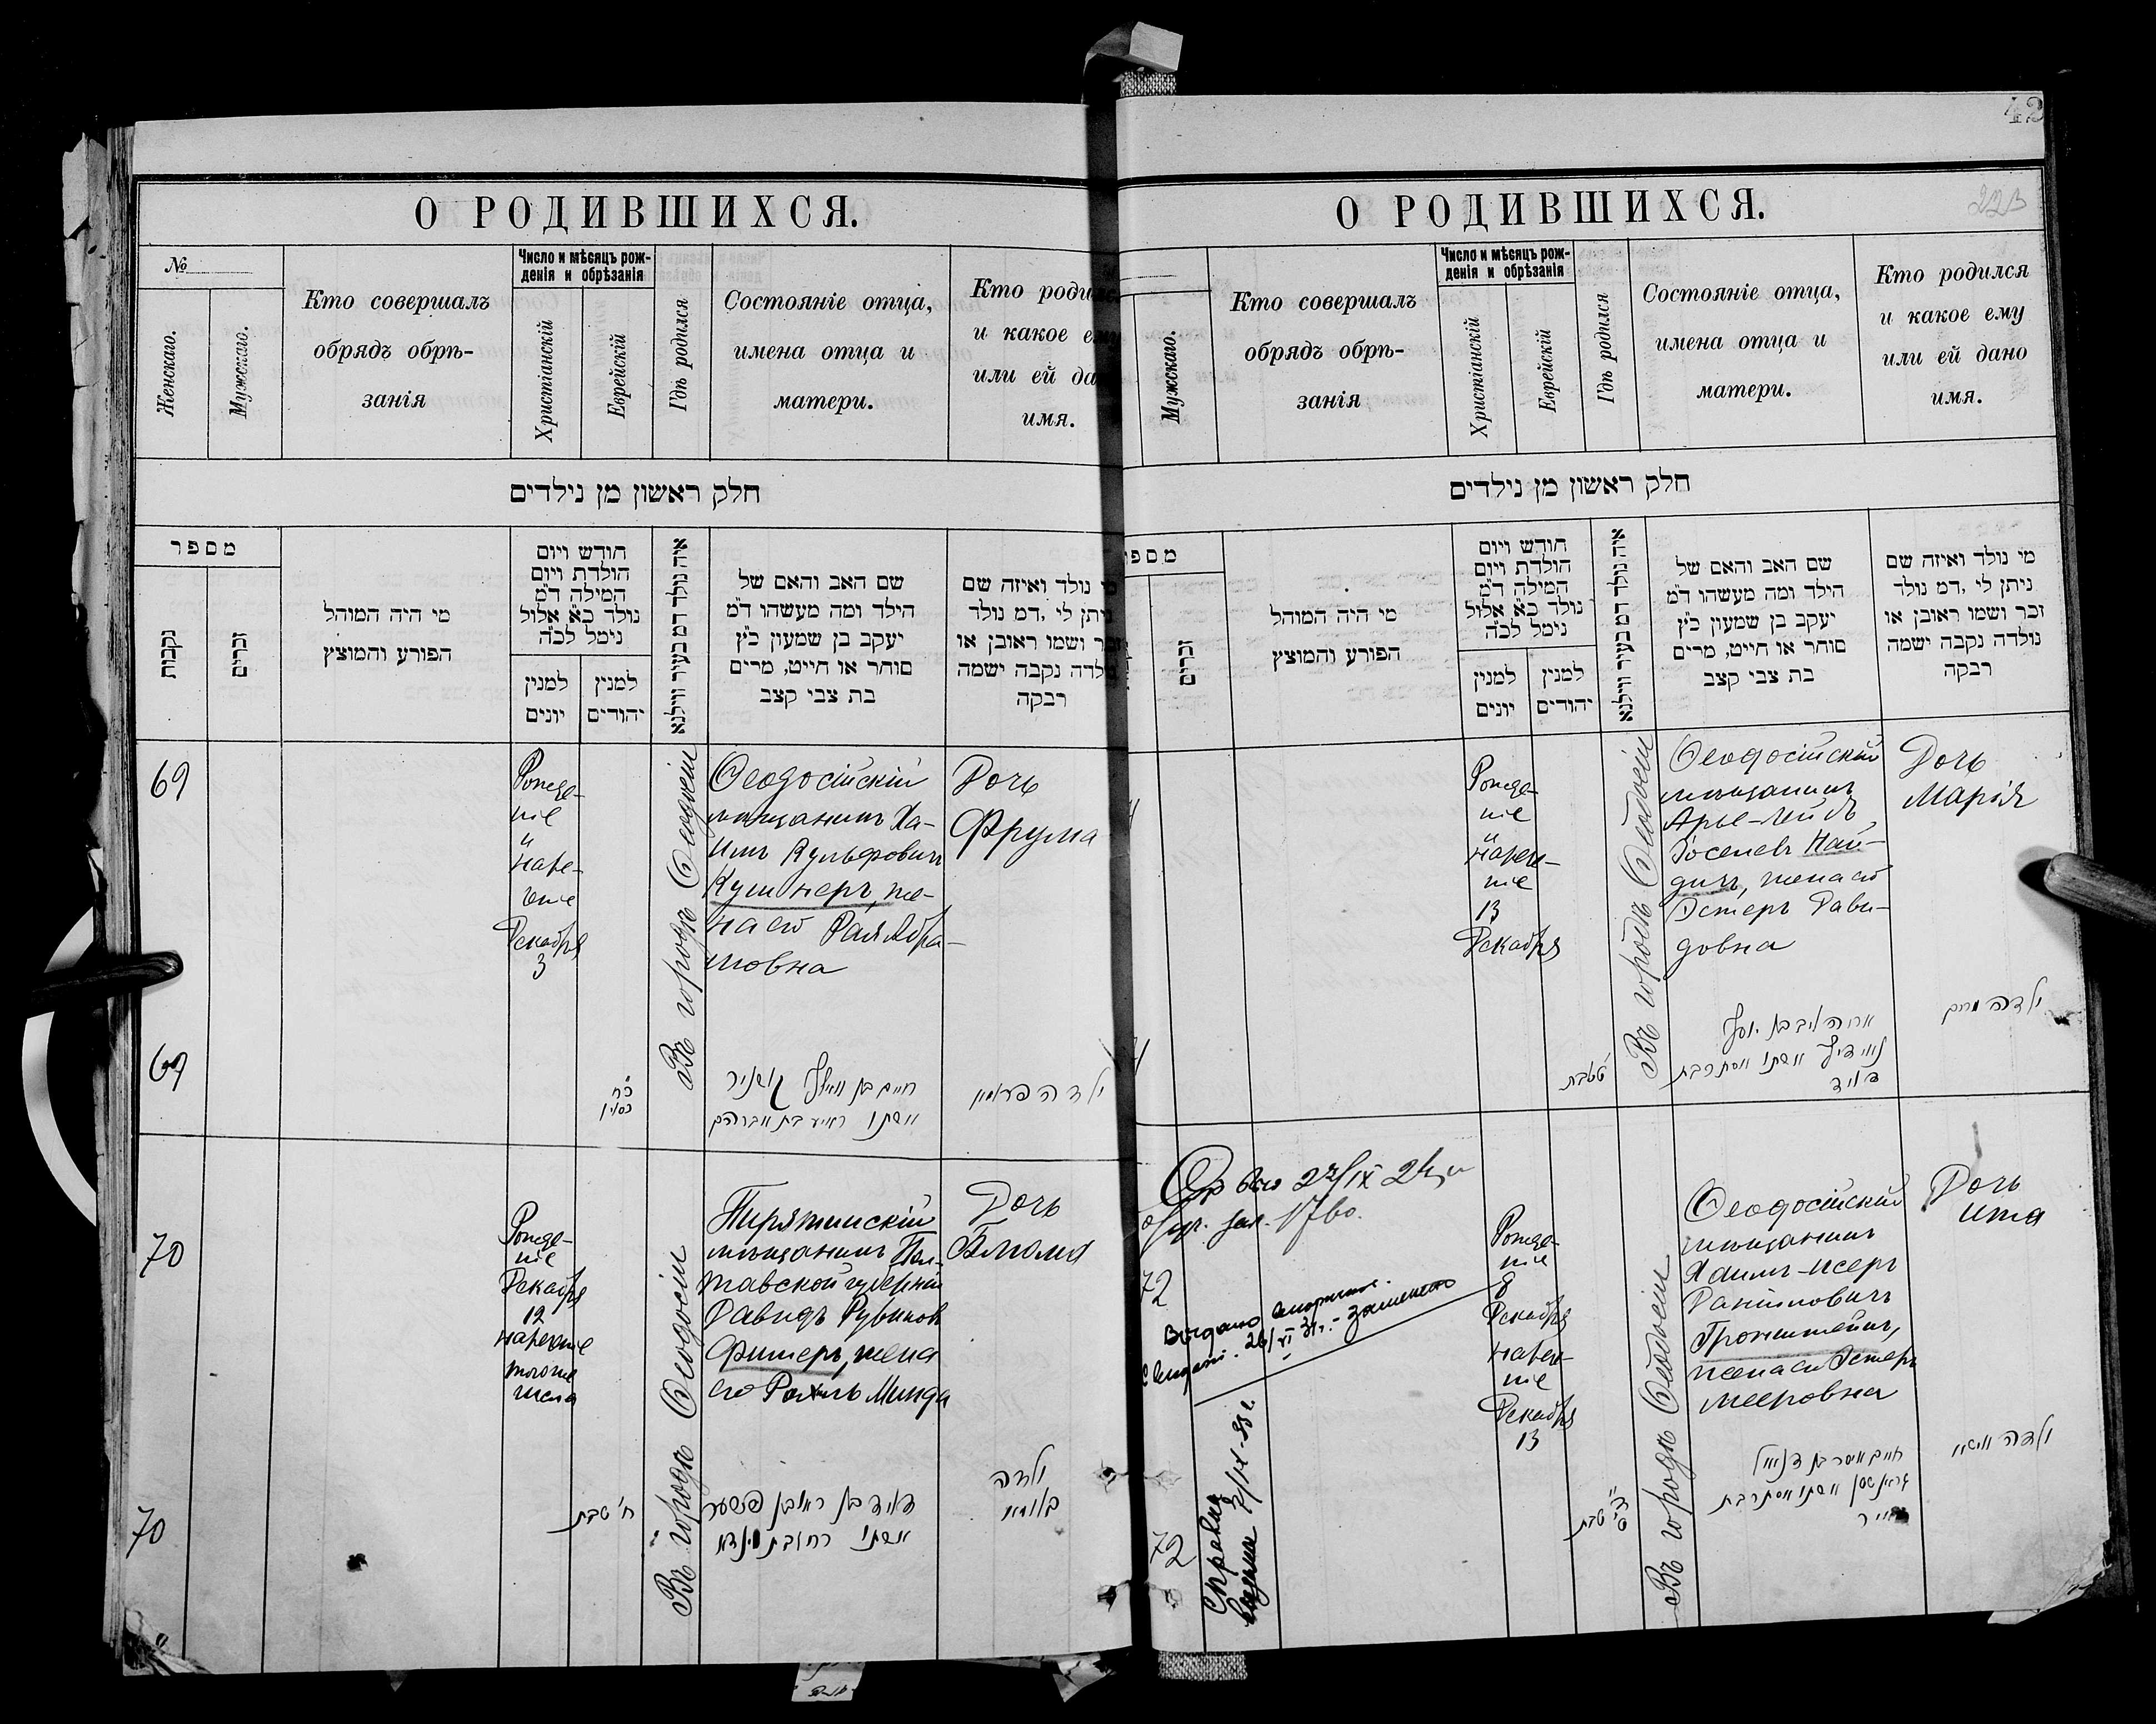 О РОДИВШИХСЯ.
№
Женскаго.
Мужскаго.
Кто совершалъ
обрядъ обрѣ-
занія
Число и мѣсяцъ рож-
денія и обрѣзанія
Христіанскій
Еврейскій
Гдѣ родился
Состояніе отца,
имена отца и
матери.
Кто роди
и какое е
или ей да
имя.
חלק ראשון מן נילדים
מספר
נקבות
זכרים
מי היה המוהל
הפורע והמוצץ
חודש ויום
הולדת ויום
המילה ד״מ
נולד כ״א אלול
נימל לכ״ה
למנין
יונים
למנין
יהודים
איה נולד דמ בעיר ווילנא
שם האב והאם של
הילד ומה מעשהו ד״מ
יעקב בן שמעון כ״ץ
סוחר או חייט, מרים
בת צבי קצב
מי נולד ואיזה שם
ניתן לי, דמ נולד
זכר ושמו ראובן או
נולדה נקבה ישמה
רבקה
69
Рожде-
ніе
и
наре-
ченіе
Декабря
3
Въ городѣ Ѳеодосіи
Ѳеодосійскій
мѣщанинъ Ха-
имъ Вульфовичъ
Кушнеръ, же-
на его Рая Абра-
мовна
Дочь
Фрума
69
כ״ח
כסלו
חיים בן וואלף קושניר
אשתו ראיע בת אברהם
ילדה פראמא
70
Рожде-
ніе
Декабря
12
нареченіе
того же
числа
Въ городѣ Ѳеодосіи
Пирятинскій
мѣщанинъ Пол-
тавской губерніи
Давидъ Рувинов
Фишеръ, жена
его Рахиль Минда
Дочь
Блюма
70
ח׳ טבת
דוד בן ראובן פישער
אשתו רחל בת מינדא
ילדה
בלומא
42
О РОДИВШИХСЯ.
Мужскаго.
Кто совершалъ
обрядъ обрѣ-
занія
Число и мѣсяцъ рож-
денія и обрѣзанія
Христіанскій
Еврейскій
Гдѣ родился
Состояніе отца,
имена отца и
матери.
Кто родился
и какое ему
или ей дано
имя.
חלק ראשון מן נילדים
מספר
זכרים
מי היה המוהל
הפורע והמוצץ
חודש ויום
הולדת ויום
המילה ד״מ
נולד כ״א אלול
נימל לכ״ה
למנין
יונים
למנין
יהודים
איה נולד דמ בעיר ווילנא
שם האב והאם של
הילד ומה מעשהו ד״מ
יעקב בן שמעון כ״ץ
סוחר או חייט, מרים
בת צבי קצב
מי נולד ואיזה שם
ניתן לי, דמ נולד
זכר ושמו ראובן או
נולדה נקבה ישמה
רבקה
Рожде-
ніе
и
нарече-
ніе
13
Декабря
Въ городѣ Ѳеодосіи
Ѳеодосійскій
мѣщанинъ
Арье-Лейбъ
Іоселевъ Най-
дичъ, жена его
Эстеръ Дави-
довна
Дочь
Марія
ט׳ טבת
אריה ליב בן יוסף
נאידיץ אשתו אסתר בת
דוד
ילדה מרים
72
Рожде-
ніе
8
Декабря
нарече-
ніе
Декабря
13
Въ городѣ Ѳеодосіи
Ѳеодосійскій
мѣщанинъ
Хаимъ-Исеръ
Даниловичъ
Гронштейнъ,
жена его Эстеръ
Мееровна
Дочь
Ита
72
Справка
выдана
טבת
חיים איסר בן דניאל
גראנשטין אשתו אסתר בת
מאיר